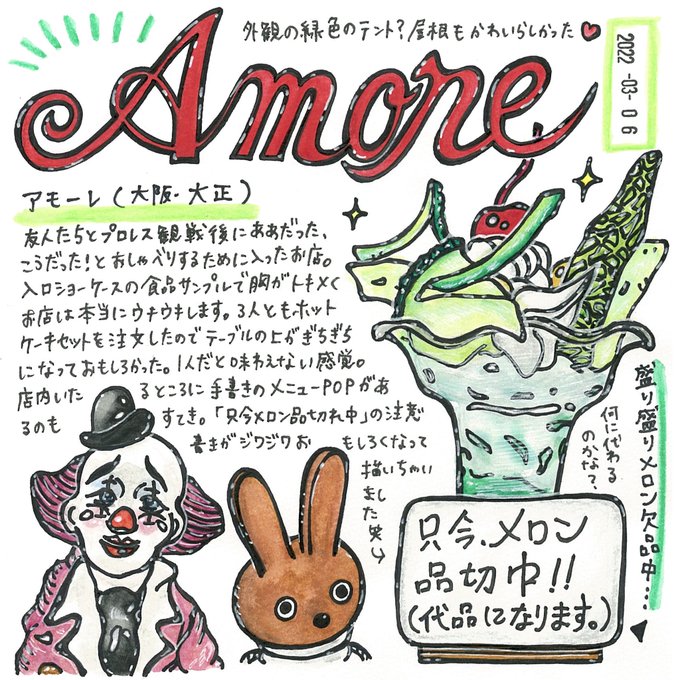 外観の緑色のテント?屋根もかわいらしかった
Amore
2022 -03- 06
アモーレ(大阪・大正)
友人たちとプロレス観戦後にああだった、
こうだった!とおしゃべりするために入ったお店。
入口ショーケースの食品サンプルで胸がトキメく
お店は本当にウキウキします。3人ともホット
ケーキセットを注文したのでテーブルの上がぎちぎち
になっておもしろかった。1人だと味わえない感覚。
店内いたるところに手書きのメニューPOPがあ
るのもすてき。「只今メロン品切れ中」の注意
書きがジワジワおもしろくなって
描いちゃい
ました笑
盛り盛りメロン欠品中…
何に代わる
のかな?
只今、メロン
品切中!!
(代品になります。)